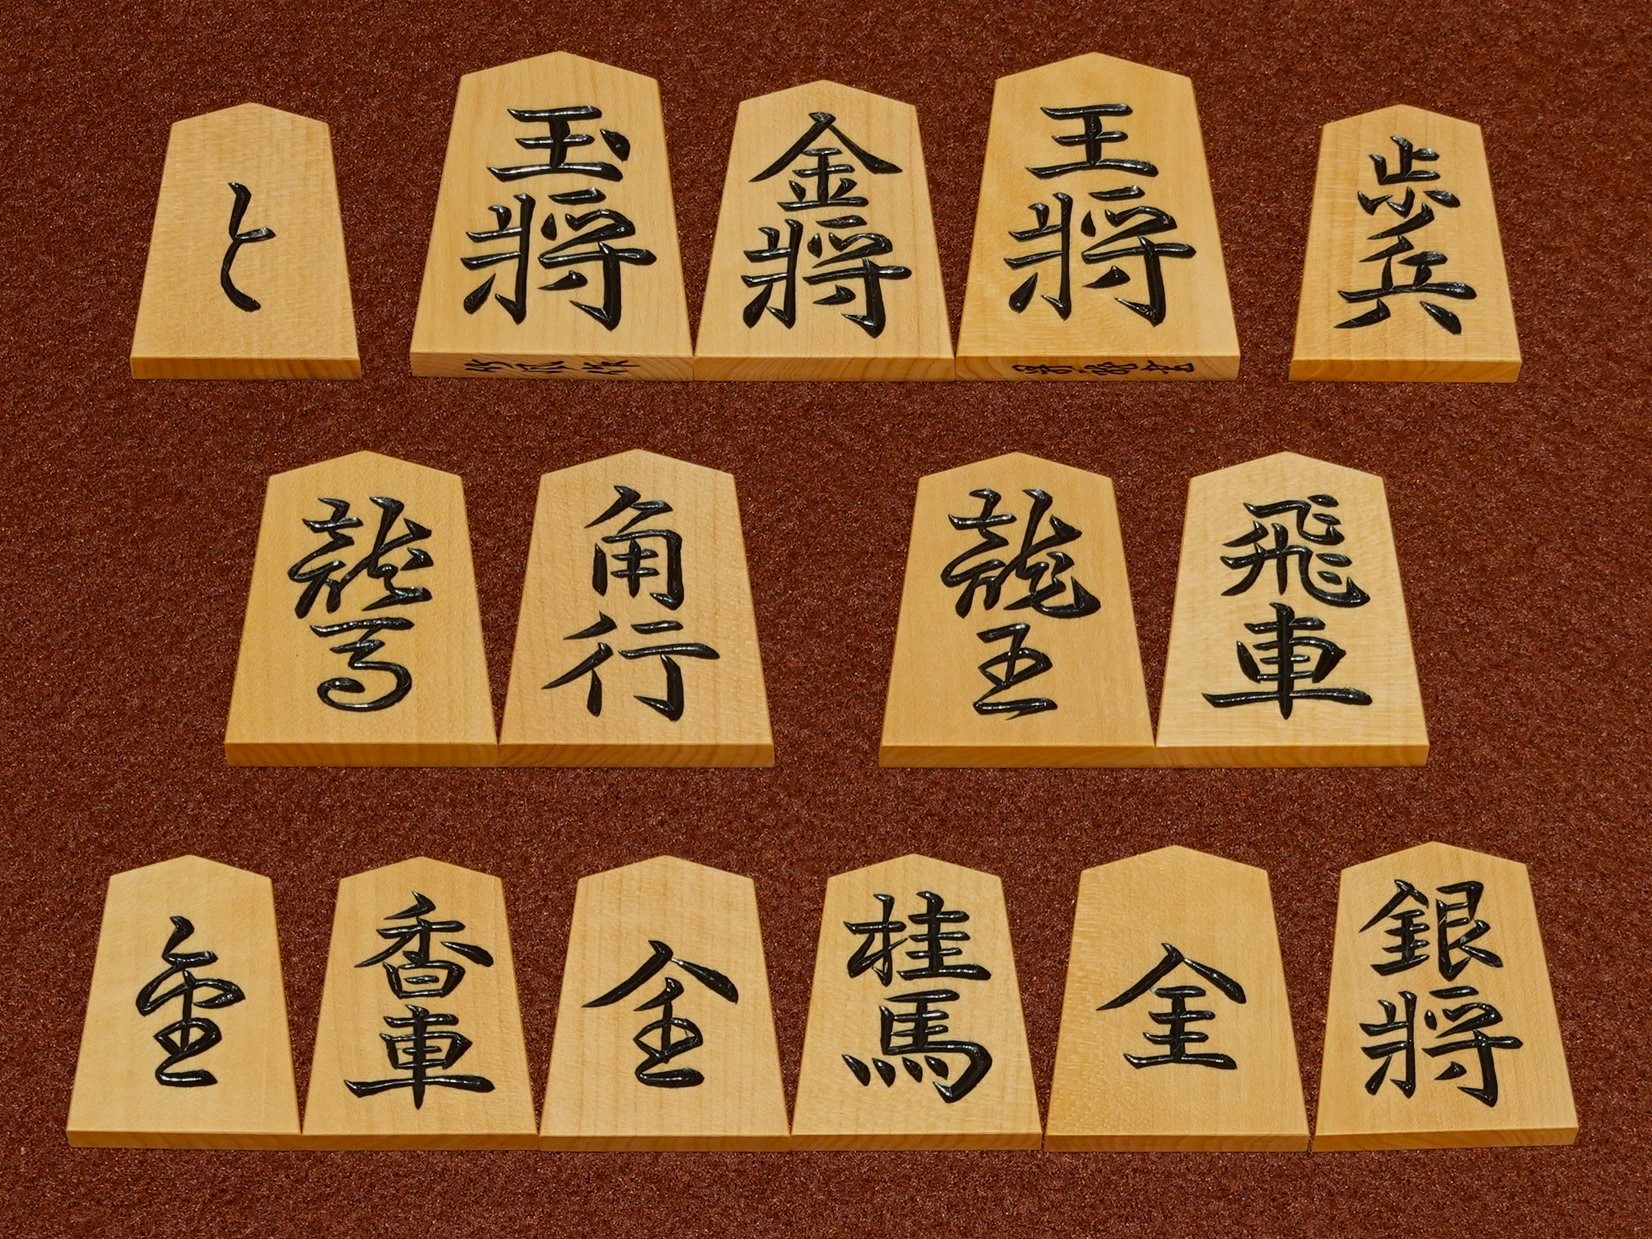 と
玉将
金将
王将
歩兵
龍馬
角行
龍王
飛車
金
香車
全
桂馬
全
銀将